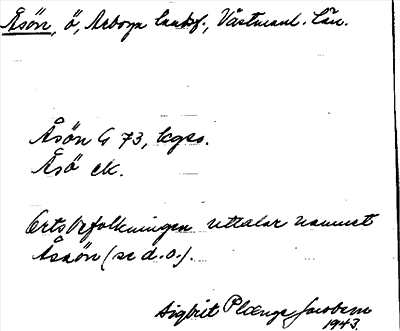 Åsön, ö, Arboga landsf., Västmanl. län.
Åsön G 73, kgss.
Åsö ek.
Ortsbefolkningen uttalar namnet
Åsön (se d.o.).
Sigbrit Plænge Jacobson
1943.